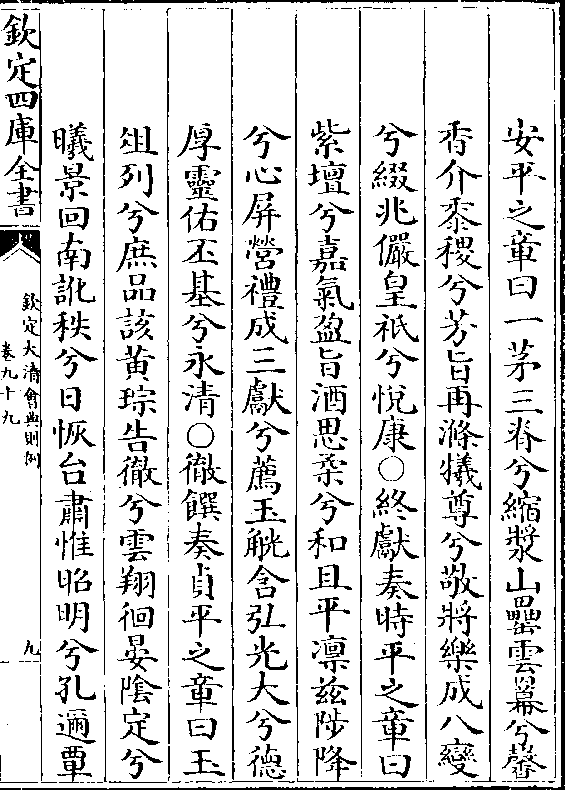 安平之章曰一茅三脊兮縮漿山罍雲冪兮馨
香介黍稷兮芳旨再滌犧尊兮敬將樂成八變
兮綴兆儼皇祇兮悅康○終獻奏時平之章曰
紫壇兮嘉氣盈旨酒思柔兮和且平凛兹陟降
兮心屏營禮成三獻兮薦玉觥含弘光大兮德
厚靈佑丕基兮永清○徹饌奏貞平之章曰玉
俎列兮庶品該黄琮告徹兮雲翔徊晏隂定兮
曦景回南訛秩兮日恢台肅惟昭明兮孔邇覃
欽定四庫全書
欽定大清會典則例
卷九十九
九